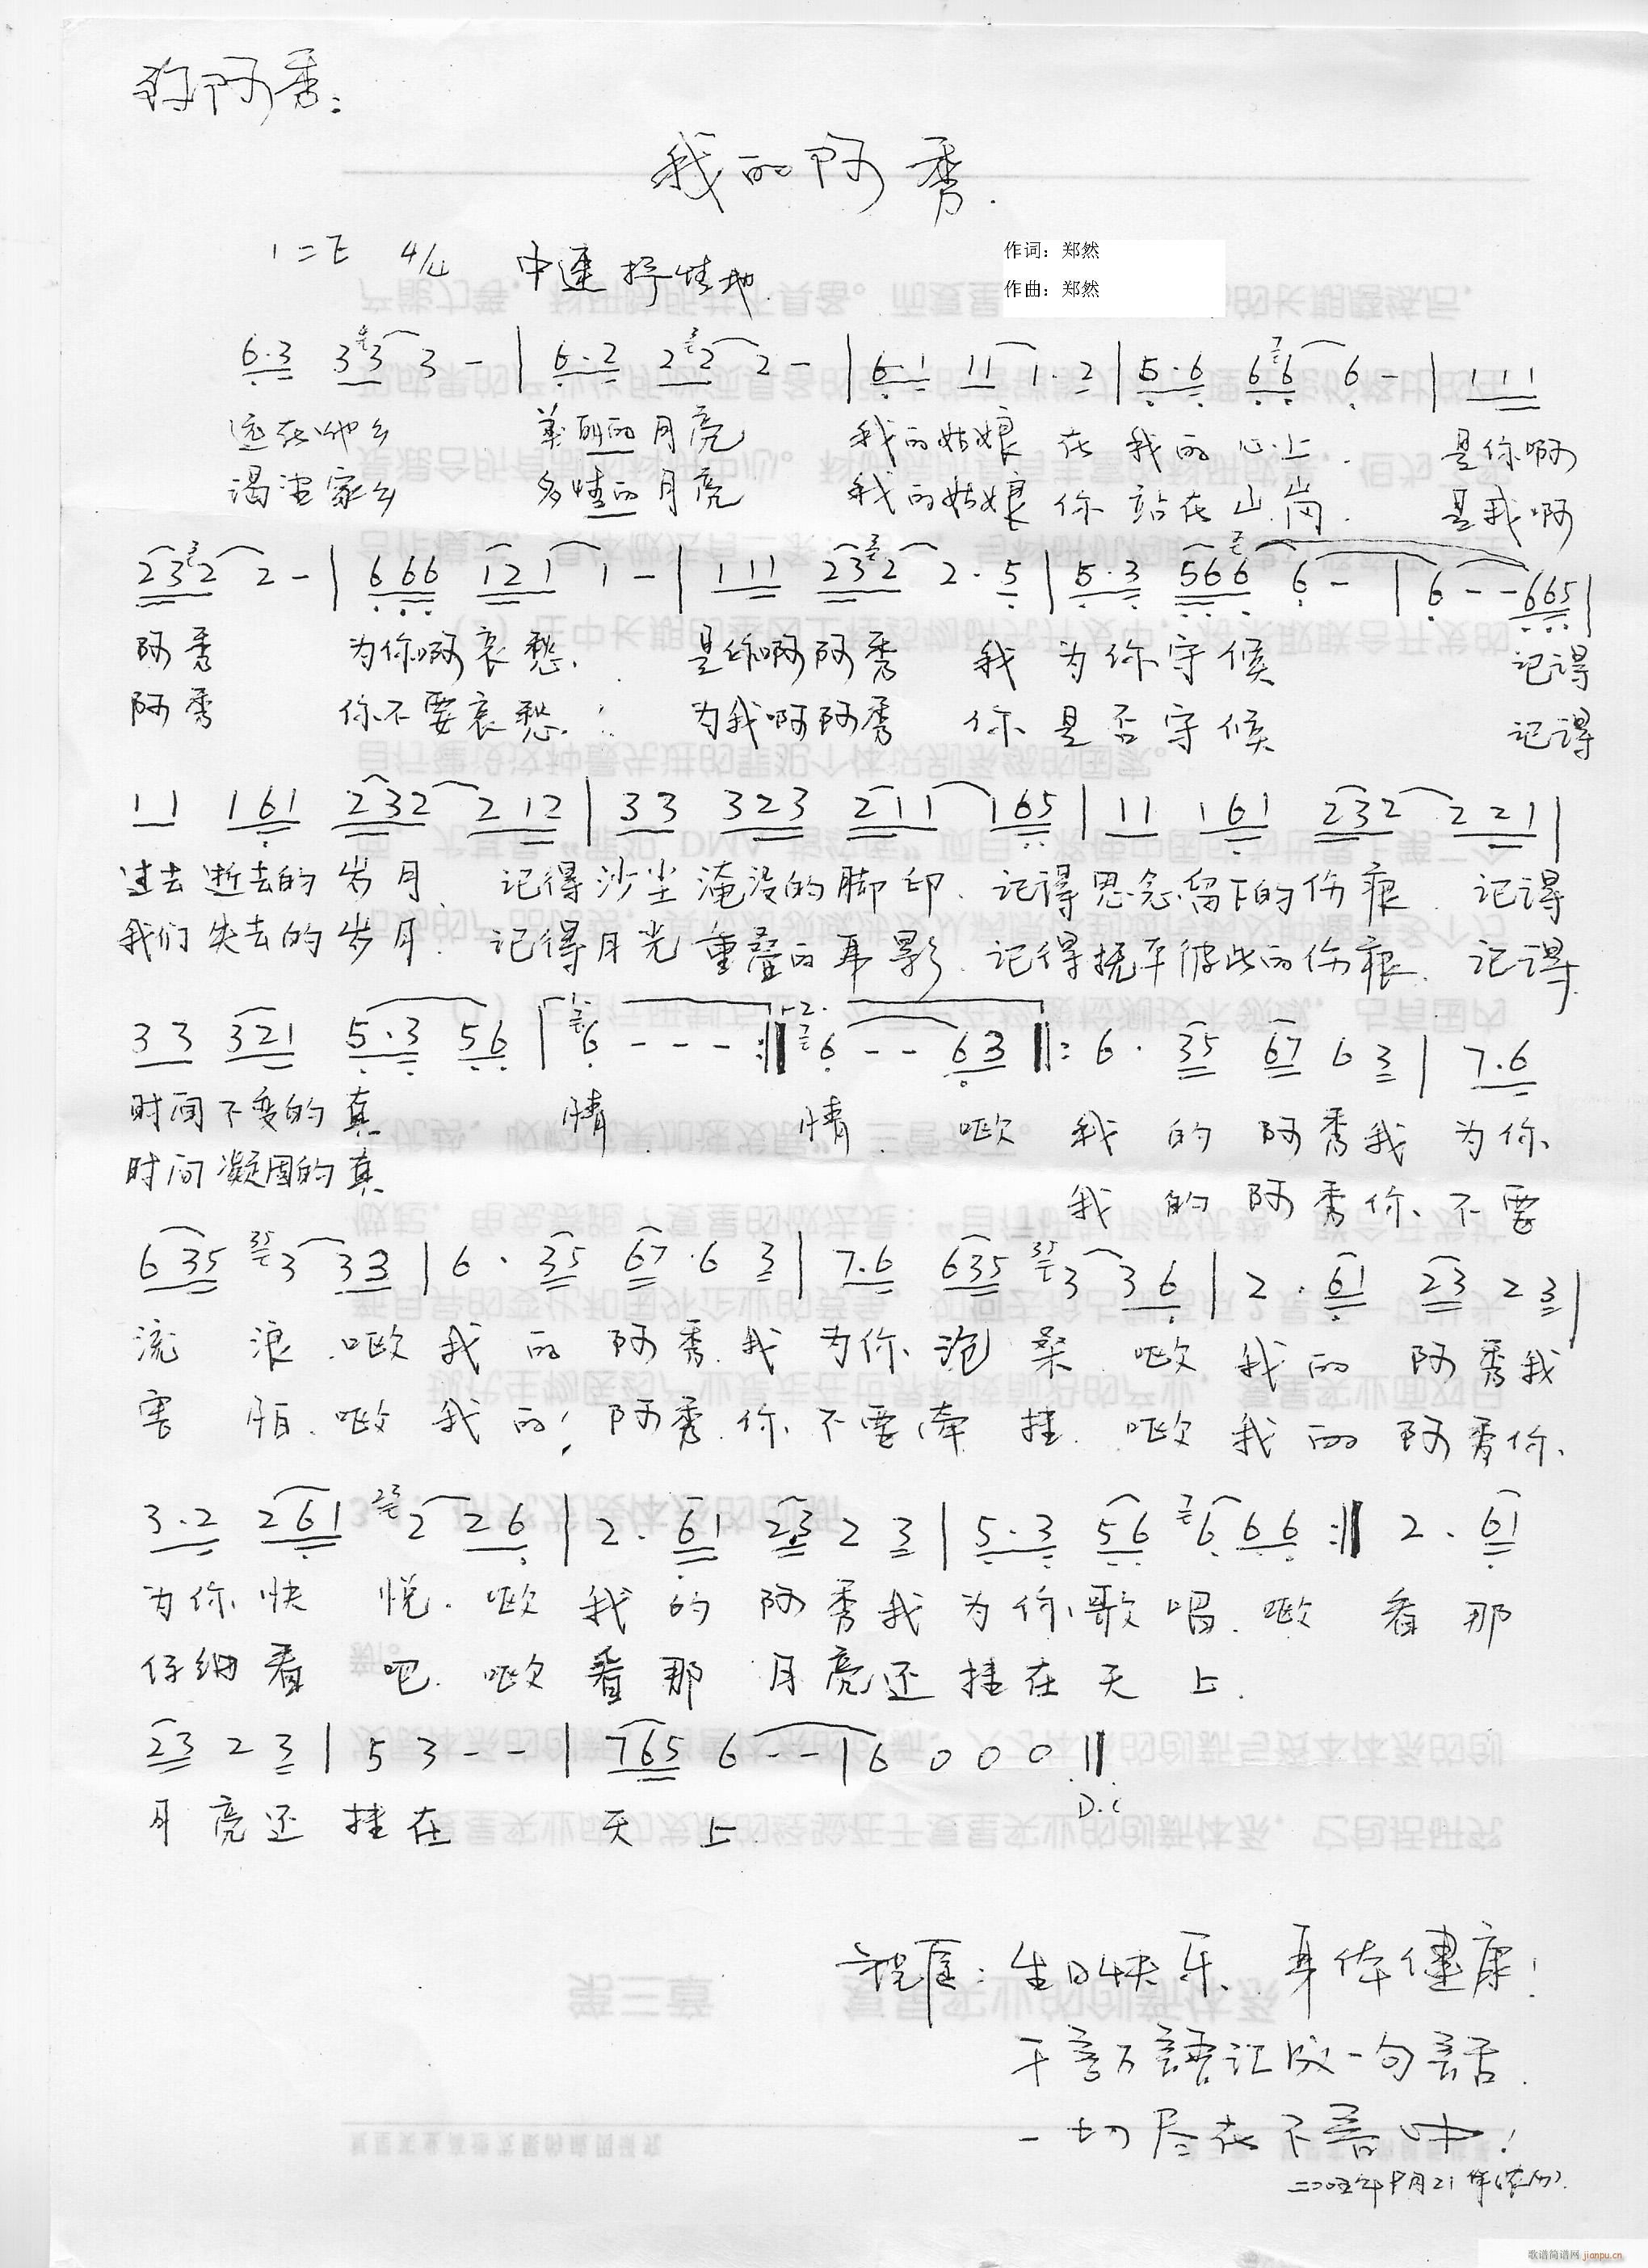 阿秀:
我的阿秀.
1=E 4/4 中速 抒情地
作词：郑然
作曲：郑然
6·3 3 3 3 - | 6·2 2 2 2 - | 6·1 11 1·2 | 5·6 66 6 - | 1 11
远在他乡 美丽的月亮 我的姑娘 在我的心上. 是你啊
渴望家乡 多情的月亮 我的姑娘 你站在山岗. 是我啊
232 2 - | 666 121 1 - | 111 232 2·5 | 5·3 566 6 - | 6 - - 665 |
阿秀 为你啊哀愁. 是你啊阿秀 我为你守候 记得
阿秀 你不要哀愁. 为我啊阿秀 你是否守候 记得
11 161 232 212 | 33 323 211 165 | 11 161 232 221 |
过去逝去的岁月. 记得沙尘淹没的脚印. 记得思念留下的伤痕. 记得
我们失去的岁月. 记得月光重叠的身影. 记得抚平彼此的伤痕. 记得
33 321 5·3 56 | 1. 6 - - - :‖ 2. 6 - - 63 ‖: 6· 35 67 6 3 | 7·6
时间不变的真 情. 情. 呕 我的阿秀我为你
时间凝固的真 我的阿秀你不要
635 3 33 | 6· 35 67·6 3 | 7·6 635 3 36 | 2· 61 23 2 3 |
流浪.呕我的阿秀.我为你沧桑.呕我的阿秀我
害怕.呕我的阿秀.你不要牵挂.呕我的阿秀你
3·2 261 2 26 | 2· 61 23 2 3 | 5·3 56 6 66 :‖ 2· 61
为你快悦.呕我的阿秀我为你歌唱.呕看那
仔细看吧.呕看那月亮还挂在天上.
23 2 3 | 5 3 - - | 765 6 - - | 6 0 0 0 ‖
D.C
月亮还挂在天上.
生日快乐、身体健康!
千言万語汇成一句話.
一切尽在不言中!
二00五年9月21
歌谱简谱网 jianpu.cn